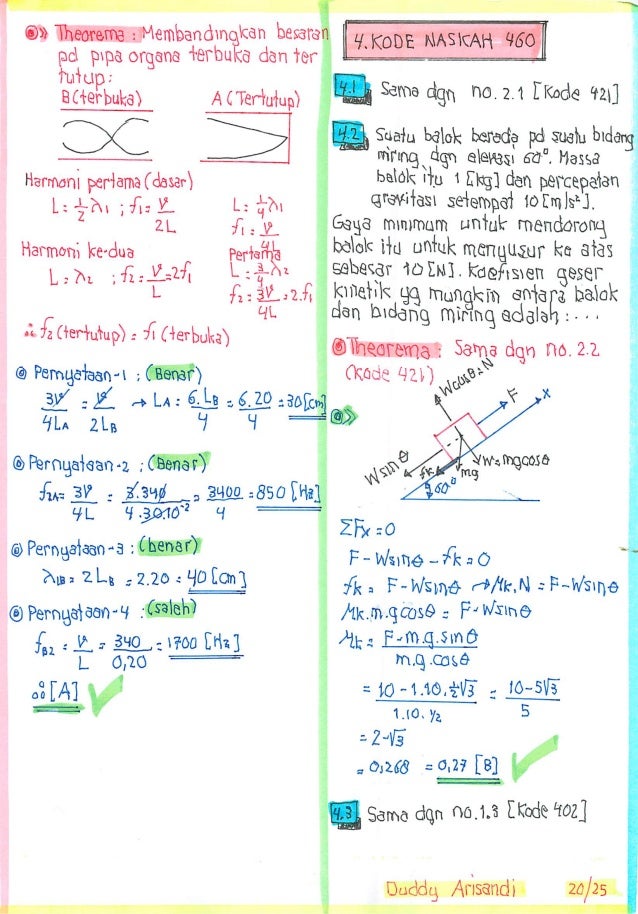 ⊚» Theorema : Membandingkan besaran
pd pipa organa terbuka dan ter
tutup:
B (terbuka) A (Tertutup)
Harmoni pertama (dasar)
L = ½ λ1 ; f1 = V/2L L = ¼ λ1
f1 = V/4L
Harmoni ke-dua Pertama
L = λ2 ; f2 = V/L = 2f1 L = ¾ λ2
f2 = 3V/4L = 2.f1
∴ f2 (tertutup) = f1 (terbuka)
⊚ Pernyataan-1 : (Benar)
3V/4LA = V/2LB → LA = 6.LB/4 = 6.20/4 = 30 [cm]
⊚ Pernyataan-2 : (Benar)
f2A = 3V/4L = 3.340/4.30.10⁻² = 3400/4 = 850 [Hz]
⊚ Pernyataan-3 : (benar)
λ1B = 2LB = 2.20 = 40 [cm]
⊚ Pernyataan-4 : (salah)
fB2 = V/L = 340/0,20 = 1700 [Hz]
∴ [A]
4. KODE NASKAH 460
4.1 Sama dgn no. 2.1 [Kode 421]
4.2 Suatu balok berada pd suatu bidang
miring dgn elevasi 60°. Massa
balok itu 1 [kg] dan percepatan
gravitasi setempat 10 [m/s²].
Gaya minimum untuk mendorong
balok itu untuk menyusur ke atas
sebesar 10 [N]. Koefisien geser
kinetik yg mungkin antara balok
dan bidang miring adalah : ...
⊚ Theorema : Sama dgn no. 2.2
(kode 421)
⊚»
W cosθ = N
F
X
W sin θ
fk
mg
W = mg cosθ
60°
ΣFx = 0
F - W sinθ - fk = 0
fk = F - W sinθ → μk. N = F - W sinθ
μk. m. g cosθ = F - W sinθ
μk = F - m.g. sinθ / m.g. cosθ
= 10 - 1.10. ½√3 / 1.10. ½ = 10 - 5√3 / 5
= 2 - √3
= 0,268 = 0,27 [B]
4.3 Sama dgn no. 1.3 [Kode 402]
Duddy Arisandi 20/25